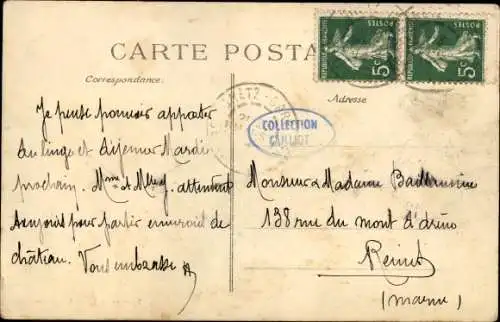 CARTE POSTA
Correspondance
Adresse
REPUBLIQUE FRANÇAISE POSTES 5c
REPUBLIQUE FRANÇAISE POSTES 5c
METZ
COLLECTION
Je pense pouvoir apporter
du linge et déjeuner Mardi
prochain. Mme et attendent
toujours pour partir de
château. Vous embrasse
Monsieur & Madame
138 rue du mont d'arène
Reims
(Marne)